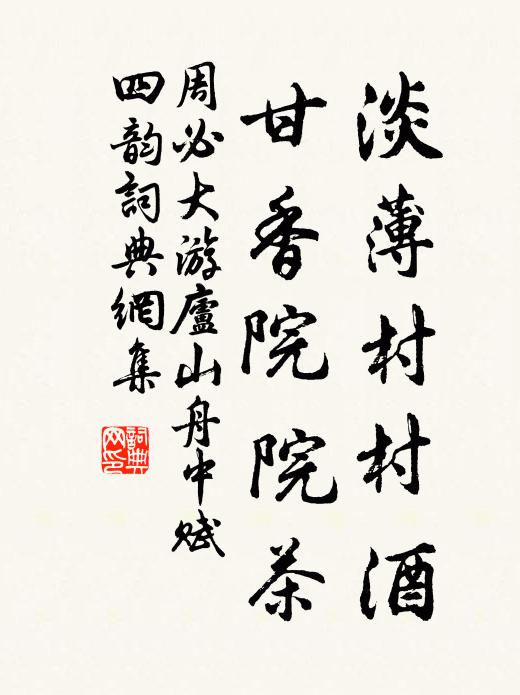 淡薄村村酒
甘香院院茶
周必大游廬山舟中賦
四韵詞典網集
詞典
网印